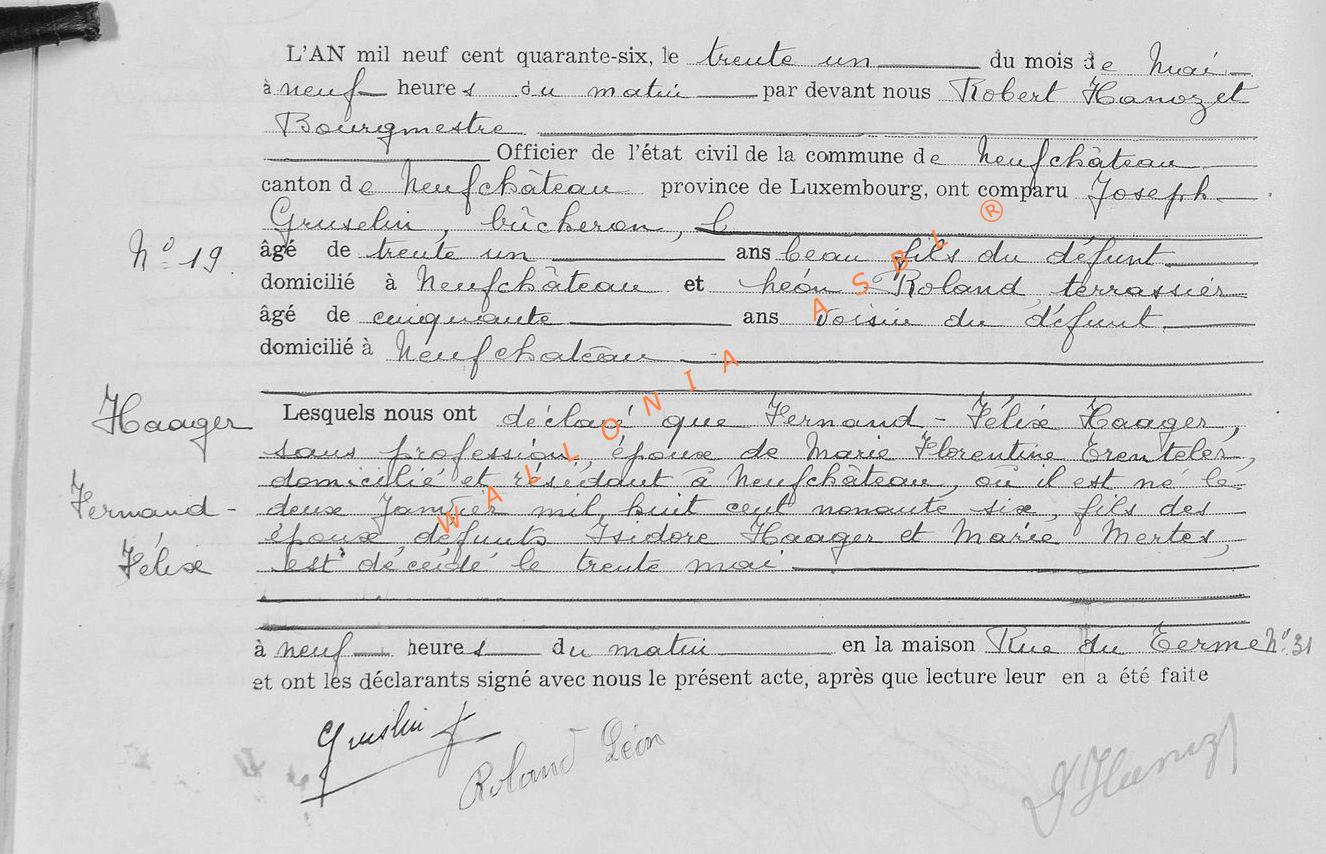 L'AN mil neuf cent quarante-six, le trente un du mois de Mai
à neuf heures du matin par devant nous Robert Hanozet
Bourgmestre
Officier de l'état civil de la commune de Neufchâteau
canton de Neufchâteau province de Luxembourg, ont comparu Joseph
Gruselin, bûcheron,
N° 19
âgé de trente un ans beau fils du défunt
domicilié à Neufchâteau et Léon Roland terrassier
âgé de cinquante ans voisin du défunt
domicilié à Neufchateau
Haager
Fernand-
Félix
Lesquels nous ont déclaré que Fernand-Félix Haager,
sans profession, époux de Marie Florentine Trenteler,
domicilié et résidant à Neufchâteau, où il est né le
deux Janvier mil huit cent nonante six, fils des
époux défunts Isidore Haager et Marie Mertes,
est décédé le trente mai
à neuf heures du matin en la maison Rue du Terme N° 31
et ont les déclarants signé avec nous le présent acte, après que lecture leur en a été faite
Gruslin
Roland Léon
WALLONIA ASBL ®